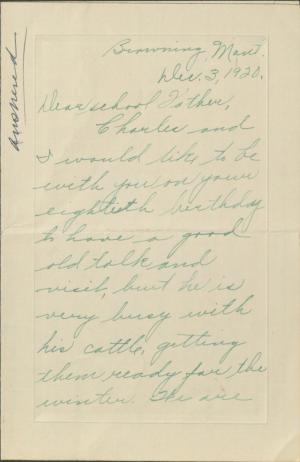 answered
Browning, Mont.
Dec. 3, 1920.
Dear school Father,
Charles and
I would like to be
with you on your
eightieth birthday
to have a good
old talk and
visit, but he is
very busy with
his cattle, getting
them ready for the
winter. We are